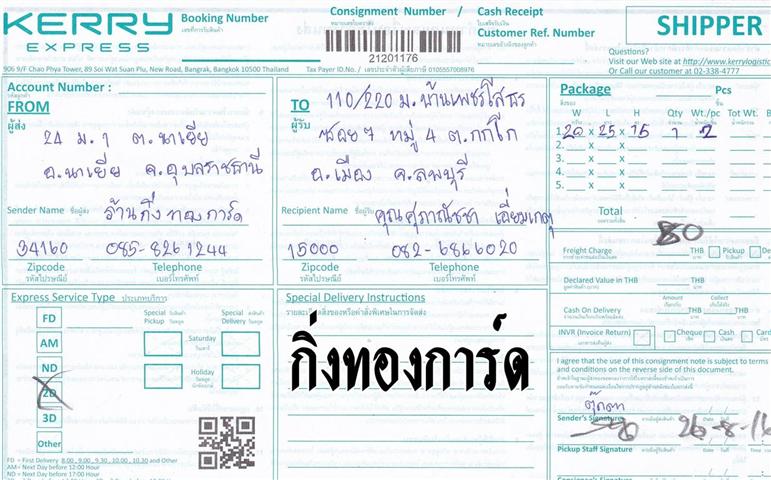 KERRY
EXPRESS
Booking Number
เลขที่การรับสินค้า
Consignment Number / Cash Receipt
หมายเลขใบตราส่ง ใบเสร็จรับเงิน
21201176
Customer Ref. Number
หมายเลขอ้างอิงของลูกค้า
SHIPPER
Questions?
Visit our Web site at http://www.kerrylogistic
Or Call our customer at 02-338-4777
906 9/F Chao Phya Tower, 89 Soi Wat Suan Plu, New Road, Bangrak, Bangkok 10500 Thailand
Tax Payer ID.No. / เลขประจำตัวผู้เสียภาษี 0105557008976
Account Number :
รหัสลูกค้า
FROM
ผู้ส่ง
24 ม. 1 ต. นาเยีย
อ. นาเยีย จ. อุบลราชธานี
Sender Name ชื่อผู้ส่ง ร้านกิ่งทองการ์ด
34160 085-8261244
Zipcode Telephone
รหัสไปรษณีย์ เบอร์โทรศัพท์
TO
ผู้รับ
110/220 ม.
ซอย 7 หมู่ 4 ต. กกโก
อ. เมือง จ. ลพบุรี
Recipient Name ชื่อผู้รับ คุณ
15000 082-6866020
Zipcode Telephone
รหัสไปรษณีย์ เบอร์โทรศัพท์
Package
สิ่งของ
Pcs
ชิ้น
W L H Qty Wt./pc Tot Wt.
1. 20 x 25 x 15 1 2
2. x x
3. x x
4. x x
5. x x
Total
80
Freight Charge THB Pickup De
Declared Value in THB THB
Amount Collect
Cash On Delivery THB THB
INVR (Invoice Return) Cheque Cash Card
I agree that the use of this consignment note is subject to terms
and conditions on the reverse side of this document.
ตุ๊กตา
Sender's Signature 26-8-16
Date Time
Pickup Staff Signature
Date
Consignee's Signature
Express Service Type ประเภทบริการ
Special Pickup
Special Delivery
FD
AM
ND
2D
3D
Other
Saturday
วันเสาร์
Holiday
วันหยุด
นักขัตฤกษ์
FD = First Delivery 8.00 , 9.00 , 9.30 , 10.00 , 10.30 and Other
AM= Next Day before 12:00 Hour
ND = Next Day before 17:00 Hour
Special Delivery Instructions
รายละเอียดสิ่งของหรือคำสั่งพิเศษในการจัดส่ง
กิ่งทองการ์ด